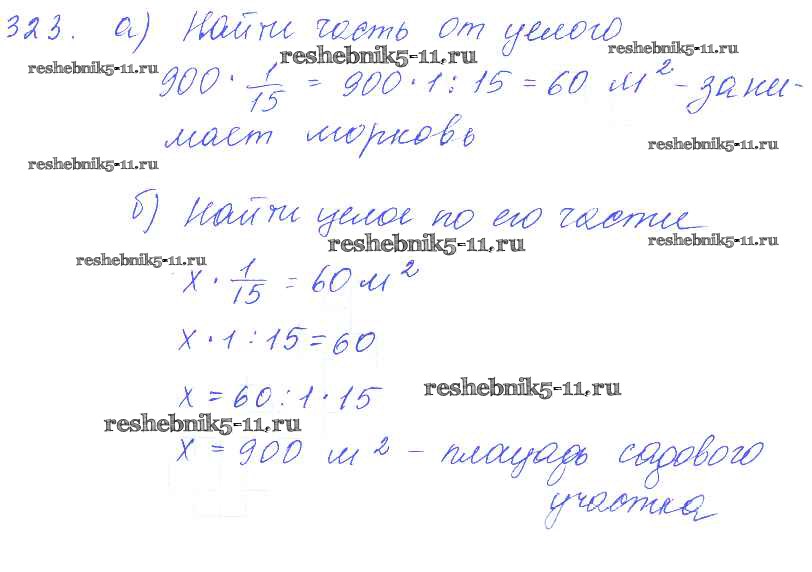 323. а) Найти часть от целого
reshebnik5-11.ru reshebnik5-11.ru reshebnik5-11.ru
900 · 1/15 = 900 · 1 : 15 = 60 м² - зани-
мает морковь
reshebnik5-11.ru
reshebnik5-11.ru
б) Найти целое по его части
reshebnik5-11.ru reshebnik5-11.ru
reshebnik5-11.ru
x · 1/15 = 60 м²
x · 1 : 15 = 60
x = 60 : 1 · 15
reshebnik5-11.ru
reshebnik5-11.ru
x = 900 м² - площадь садового
участка